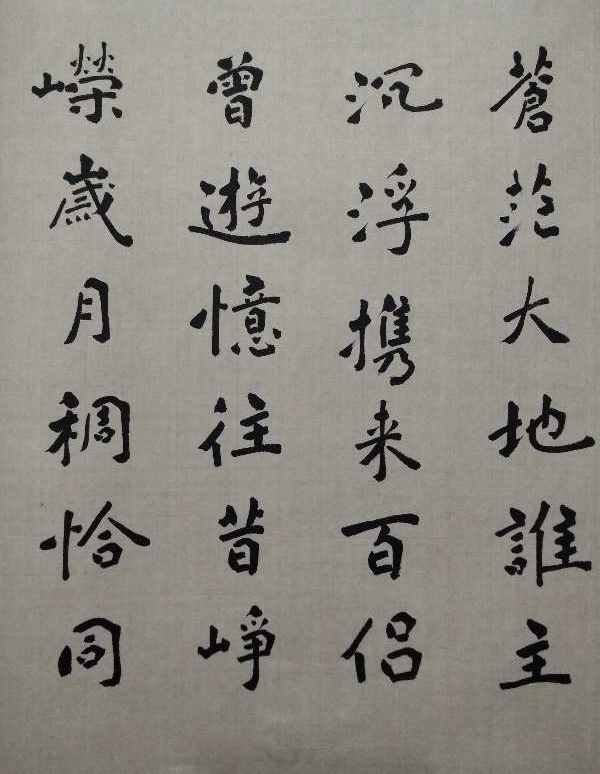 蒼茫大地誰主
沉浮携来百侣
曾遊憶往昔崢
嶸歲月稠恰同